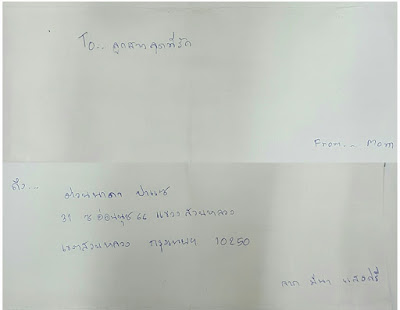 To.. ลูกสาวสุดที่รัก
From... Mom
ถึง...
31 ซ อ่อนนุช 66 แขวง สวนหลวง
เขตสวนหลวง กรุงเทพฯ 10250
จาก มีนา แสงศรี